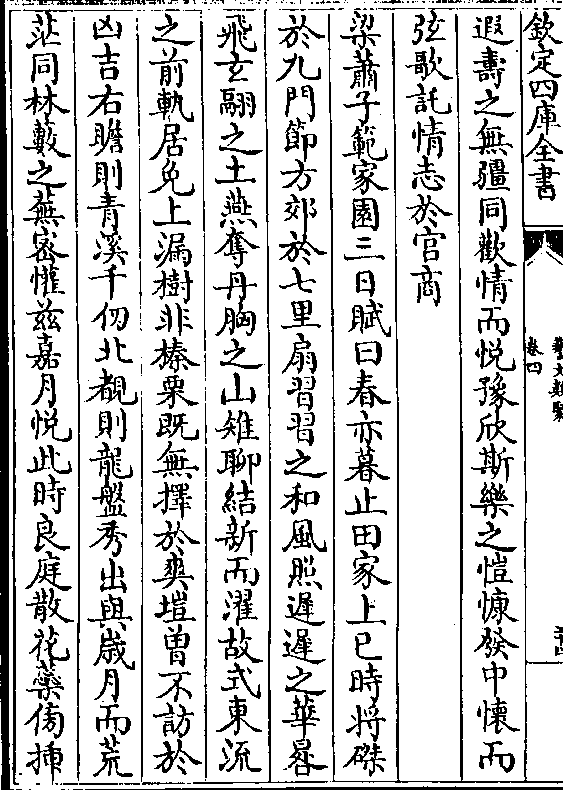 欽定四庫全書
藝文類聚
卷四
遐壽之無疆同歡情而悦豫欣斯樂之愷慷發中懷而
弦歌託情志於宮商
梁蕭子範家園三日賦曰春亦暮止田家上已時将磔
於九門節方郊於七里扇習習之和風照遲遲之華晷
飛玄翮之土燕奪丹胸之山雉聊結新而濯故式東流
之前軌居免上漏樹非榛栗既無擇於爽塏曽不訪於
凶吉右瞻則青溪千仞北覩則龍盤秀出與嵗月而荒
茫同林藪之蕪宻懽兹嘉月悦此時良庭散花蘂傍插